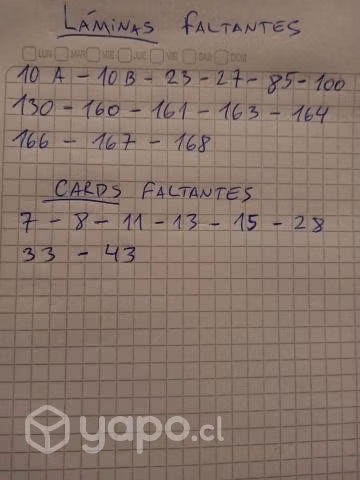 LÁMINAS FALTANTES
LUN MAR MIE JUE VIE SAB DOM
10 A - 10 B - 23 - 27 - 85 - 100
130 - 160 - 161 - 163 - 164
166 - 167 - 168
CARDS FALTANTES
7 - 8 - 11 - 13 - 15 - 28
33 - 43
yapo.cl